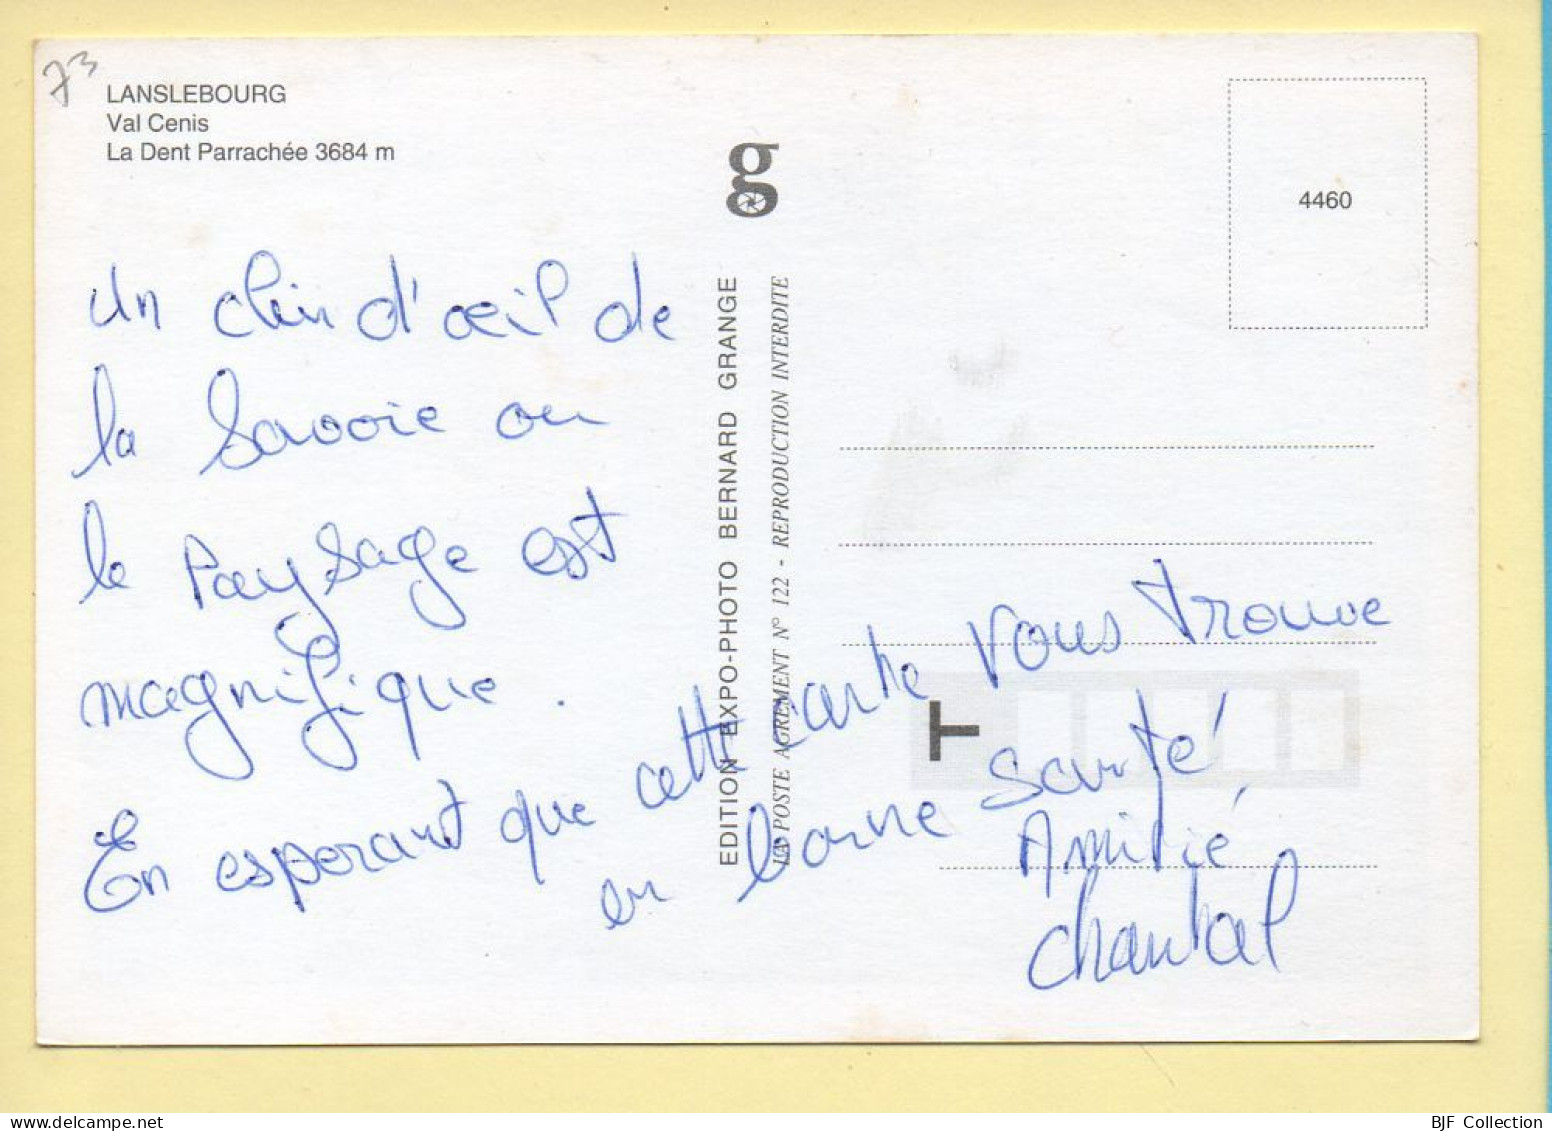 73
LANSLEBOURG
Val Cenis
La Dent Parrachée 3684 m
4460
un clin d'œil de
la Savoie ou
le Paysage est
magnifique.
En esperant que cette carte vous trouve
en bonne santé
Amitié
Chantal
EDITION EXPO-PHOTO BERNARD GRANGE
LA POSTE AGREMENT N° 122 - REPRODUCTION INTERDITE
g
T
BJF Collection